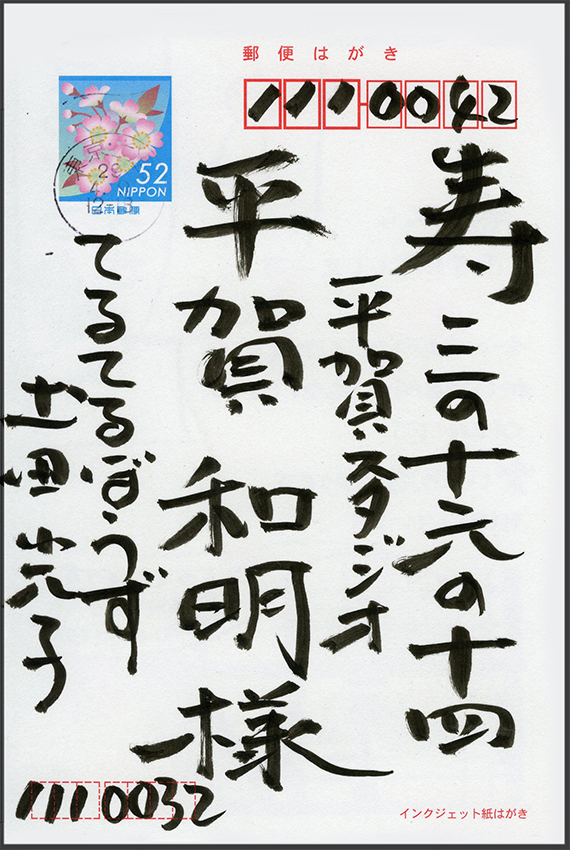 郵便はがき
111-0042
52
NIPPON
日本郵便
寿 三の十六の十四
平賀スタジオ
平賀 和明様
てるてるぼうず
田 光子
1110032
インクジェット紙はがき